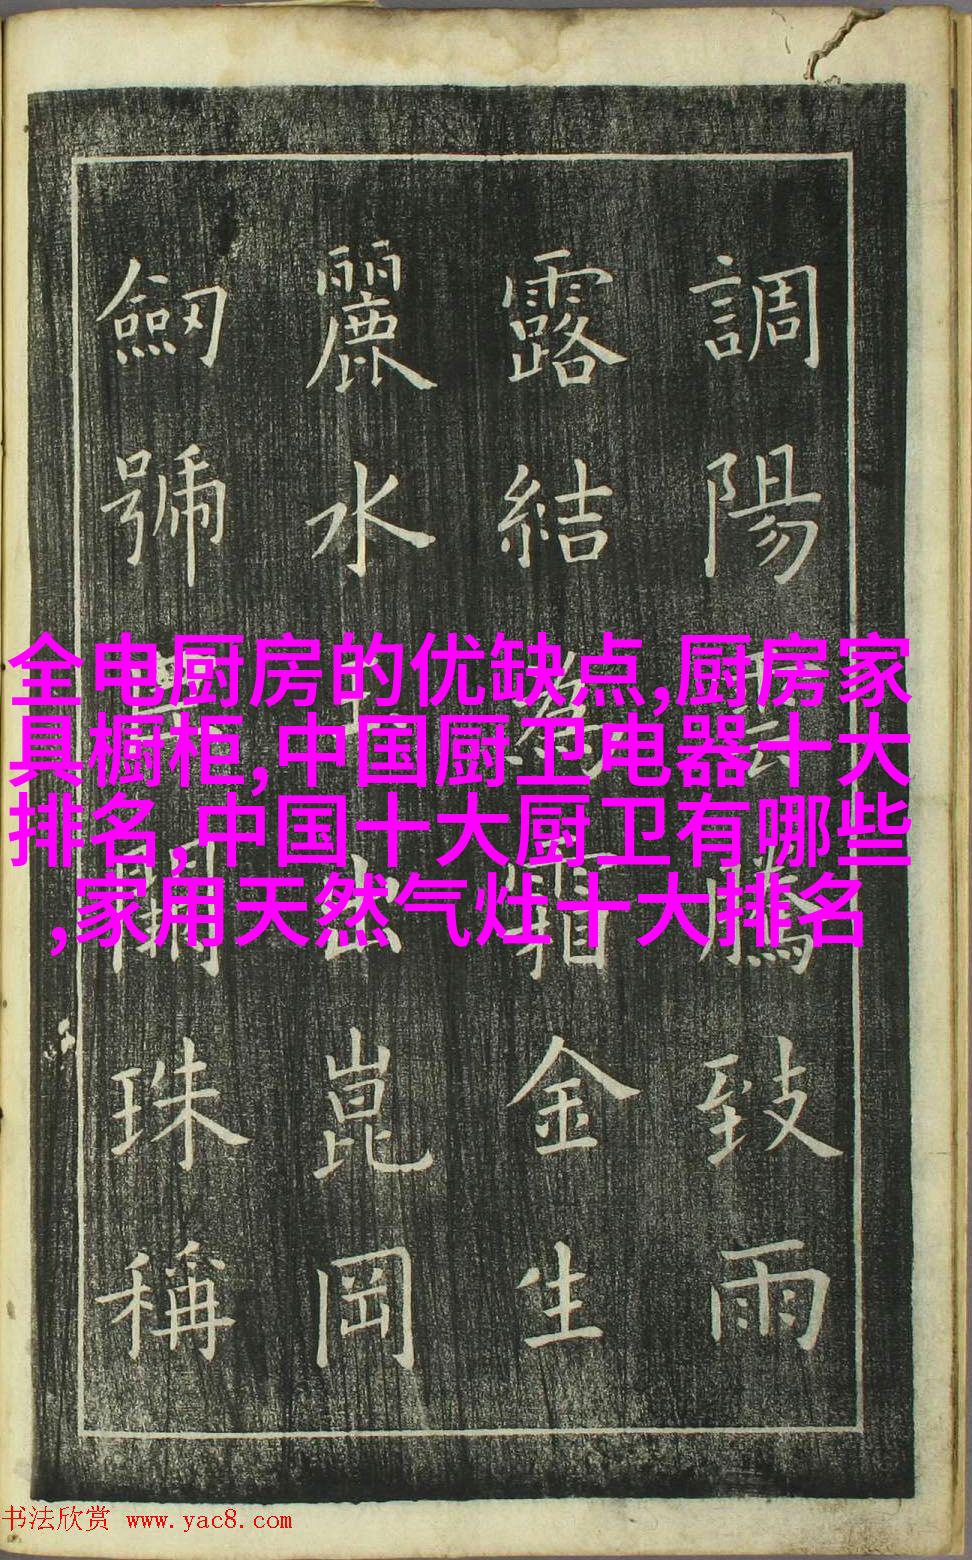 調陽雲騰致雨
露結為霜金生
麗水玉出崑岡
劒號巨闕珠稱
全电厨房的优缺点,厨房家
具橱柜,中国厨卫电器十大
排名,中国十大厨卫有哪些
,家用天然气灶十大排名
书法欣赏 www.yac8.com